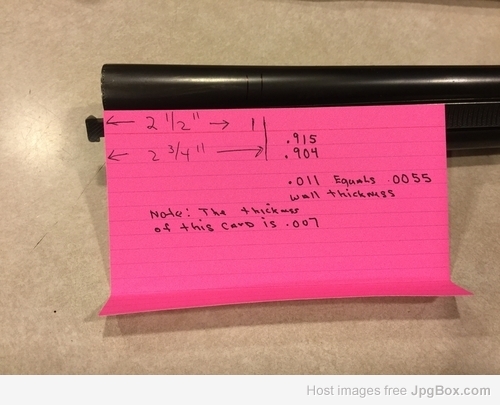 ← 2 1/2" → |
.915
← 2 3/4" →
.904
.011 Equals .0055
wall thickness
Note: The thickness
of this card is .007
Host images free JpgBox.com